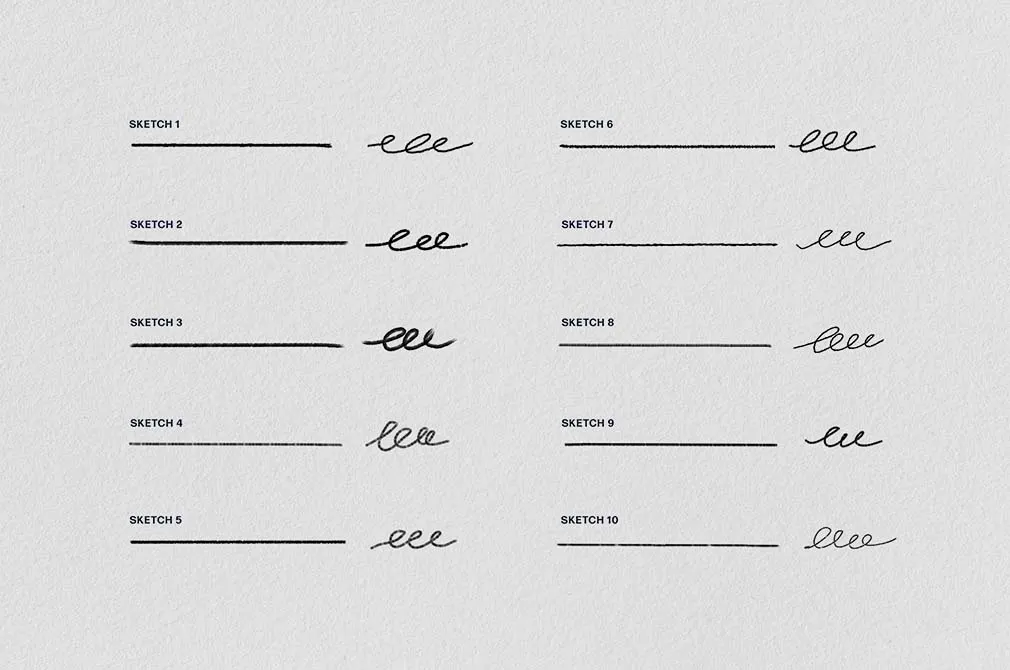 SKETCH 1
SKETCH 2
SKETCH 3
SKETCH 4
SKETCH 5
SKETCH 6
SKETCH 7
SKETCH 8
SKETCH 9
SKETCH 10